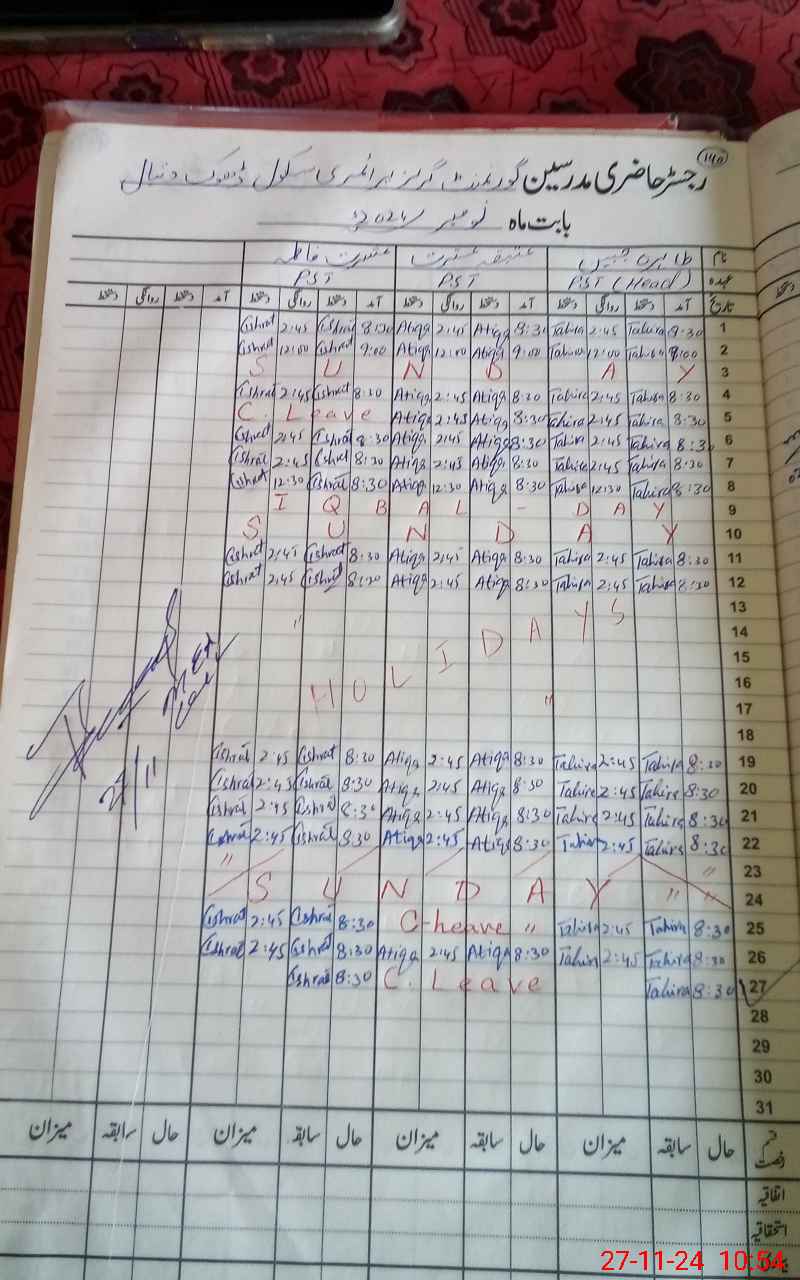 140
رجسٹر حاضری مدرسین گورنمنٹ گرلز پرائمری سکول ڈھوک دتیال
بابت ماہ نومبر 2024ء
نام طاہرہ جبیں عتیقہ عشرت عشرت فاطمہ
عہدہ PST (Head) PST PST
تاریخ آمد دستخط روانگی دستخط آمد دستخط روانگی دستخط آمد دستخط روانگی دستخط آمد دستخط روانگی دستخط
Ishrat 2:45 Ishrat 8:30 Atiqa 2:45 Atiqa 8:30 Tahira 2:45 Tahira 8:30 1
Ishrat 12:00 Ishrat 9:00 Atiqa 12:00 Atiqa 9:00 Tahira 12:00 Tahira 9:00 2
S U N D A Y 3
Ishrat 2:45 Ishrat 8:30 Atiqa 2:45 Atiqa 8:30 Tahira 2:45 Tahira 8:30 4
C. Leave Atiqa 2:45 Atiqa 8:30 Tahira 2:45 Tahira 8:30 5
Ishrat 2:45 Ishrat 8:30 Atiqa 2:45 Atiqa 8:30 Tahira 2:45 Tahira 8:30 6
Ishrat 2:45 Ishrat 8:30 Atiqa 2:45 Atiqa 8:30 Tahira 2:45 Tahira 8:30 7
Ishrat 12:30 Ishrat 8:30 Atiqa 12:30 Atiqa 8:30 Tahira 12:30 Tahira 8:30 8
I Q B A L - D A Y 9
S U N D A Y 10
Ishrat 2:45 Ishrat 8:30 Atiqa 2:45 Atiqa 8:30 Tahira 2:45 Tahira 8:30 11
Ishrat 2:45 Ishrat 8:30 Atiqa 2:45 Atiqa 8:30 Tahira 2:45 Tahira 8:30 12
13
14
15
16
17
18
" H O L I D A Y S "
Ishrat 2:45 Ishrat 8:30 Atiqa 2:45 Atiqa 8:30 Tahira 2:45 Tahira 8:30 19
Ishrat 2:45 Ishrat 8:30 Atiqa 2:45 Atiqa 8:30 Tahira 2:45 Tahira 8:30 20
Ishrat 2:45 Ishrat 8:30 Atiqa 2:45 Atiqa 8:30 Tahira 2:45 Tahira 8:30 21
Ishrat 2:45 Ishrat 8:30 Atiqa 2:45 Atiqa 8:30 Tahira 2:45 Tahira 8:30 22
" " 23
S U N D A Y " " 24
Ishrat 2:45 Ishrat 8:30 C-leave " Tahira 2:45 Tahira 8:30 25
Ishrat 2:45 Ishrat 8:30 Atiqa 2:45 Atiqa 8:30 Tahira 2:45 Tahira 8:30 26
Ishrat 8:30 C. Leave Tahira 8:30 27
28
29
30
31
قسم رخصت حال سابقہ میزان حال سابقہ میزان حال سابقہ میزان حال سابقہ میزان
اتفاقیہ
استحقاقیہ
27-11-24 10:54